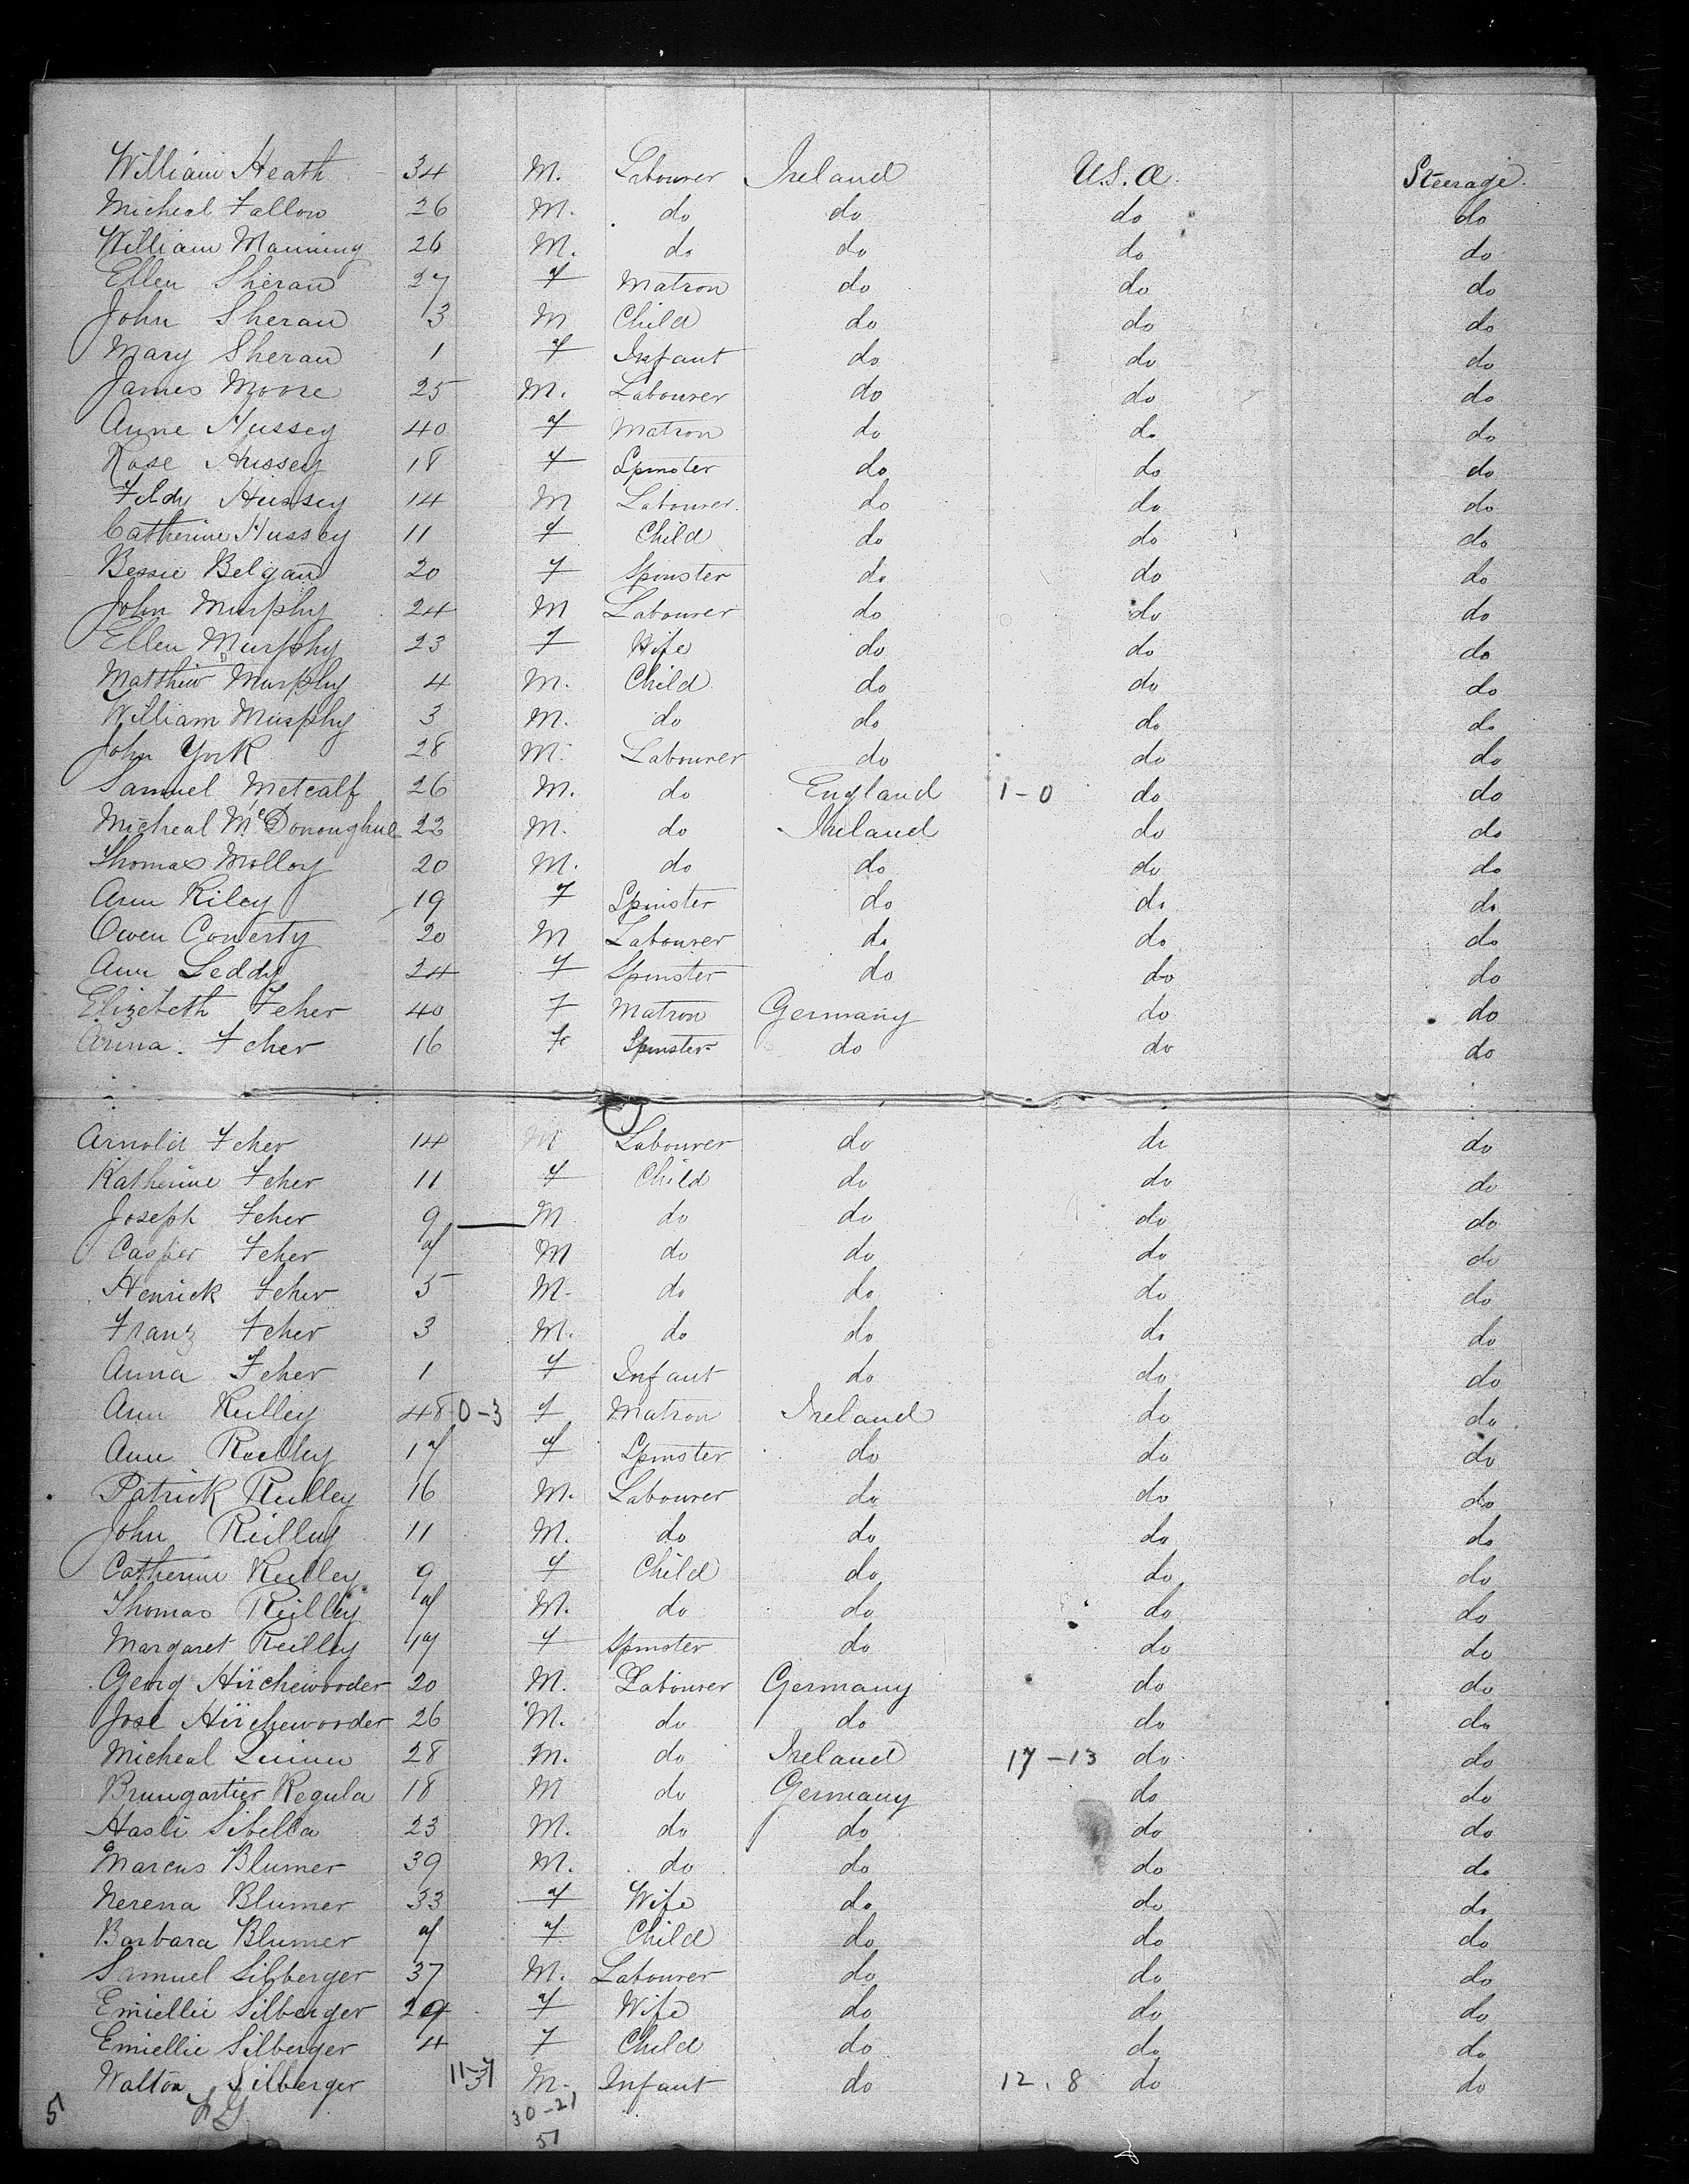 William Heath 34 M. Labourer Ireland U.S.A. Steerage.
Micheal Fallow 26 M. do do do do
William Manning 26 M. do do do do
Ellen Sheran 27 F Matron do do do
John Sheran 3 M Child do do do
Mary Sheran 1 F Infant do do do
James Moore 25 M. Labourer do do do
Anne Hussey 40 F Matron do do do
Rose Hussey 18 F Spinster do do do
Hussey 14 M Labourer. do do do
Catherine Hussey 11 F Child do do do
Bessie Belgan 20 F Spinster do do do
John Murphy 24 M Labourer do do do
Ellen Murphy 23 F Wife do do do
Matthew Murphy 4 M. Child do do do
William Murphy 3 M. do do do do
John York 28 M. Labourer do do do
Samuel Metcalf 26 M. do England 1-0 do do
Micheal McDonoughue 22 M. do Ireland do do
Thomas Molloy 20 M. do do do do
Ann Riley 19 F Spinster do do do
Owen Conerty 20 M Labourer do do do
Ann Leddy 24 F Spinster do do do
Elizebeth Feher 40 F Matron Germany do do
Anna. Feher 16 F Spinster do do do
Arnold Feher 14 M Labourer do do do
Katherine Feher 11 F Child do do do
Joseph Feher 9 M do do do do
Casper Feher 7 M do do do do
Henrick Feher 5 M. do do do do
Franz Feher 3 M. do do do do
Anna Feher 1 F Infant do do do
Ann Reilley 48 0-3 F Matron Ireland do do
Ann Reilley 17 F Spinster do do do
Patrick Reilley 16 M. Labourer do do do
John Reilley 11 M. do do do do
Catherine Reilley 9 F Child do do do
Thomas Reilley 7 M. do do do do
Margaret Reilley 17 F Spinster do do do
Georg Hirchewooder 20 M. Labourer Germany do do
Jose Hirchewooder 26 M. do do do do
Micheal Quinn 28 M. do Ireland 17-13 do do
Brungartier Regula 18 M do Germany do do
Hasli Sibella 23 M. do do do do
Marcus Blumer 39 M. do do do do
Nerena Blumer 33 F Wife do do do
Barbara Blumer 7 F Child do do do
Samuel Silberger 37 M. Labourer do do do
Emiellie Silberger 29 F Wife do do do
Emiellie Silberger 4 F Child do do do
Walton Silberger 11-7 M. Infant do 12.8 do do
51 30-21
51